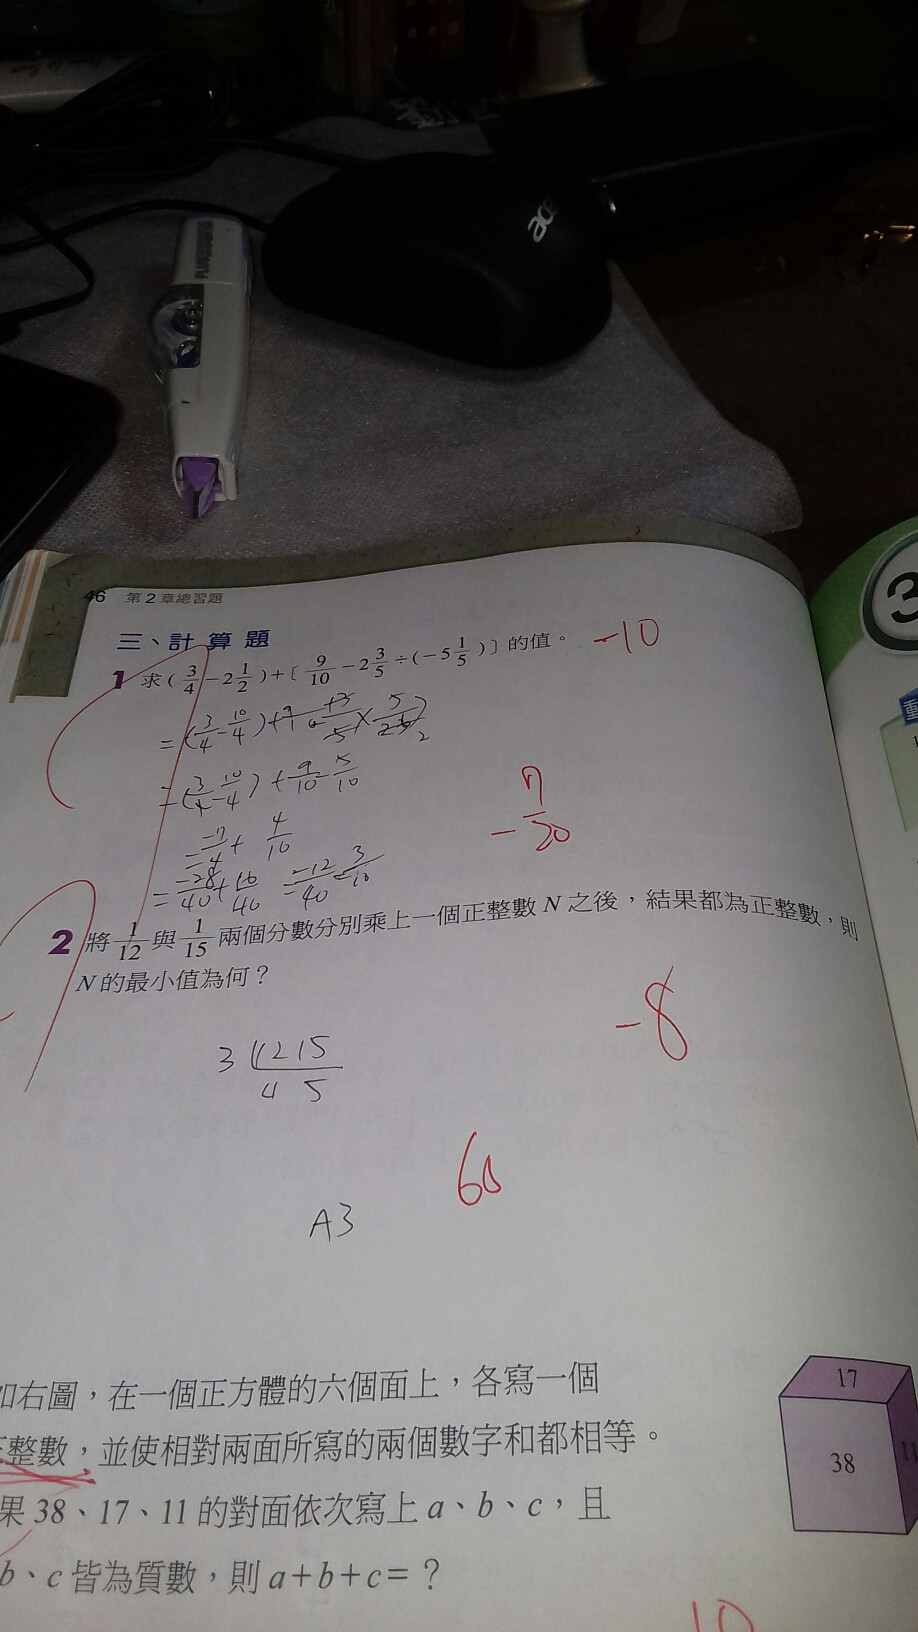 acer
PLUS
46 第2章總習題
3
三、計算題
-10
1 求(3/4-2 1/2)+[9/10-2 3/5÷(-5 1/5)]的值。
=(3/4-10/4)
=(3/4-10/4)+9/10 5/10
=-7/4+4/10
=-28/40+16/40=-12/40=3/10
-7/20
2 將1/12與1/15兩個分數分別乘上一個正整數N之後,結果都為正整數,則
N的最小值為何?
-8
3 12 15
4 5
60
A3
如右圖,在一個正方體的六個面上,各寫一個
正整數,並使相對兩面所寫的兩個數字和都相等。
果38、17、11的對面依次寫上a、b、c,且
b、c皆為質數,則a+b+c=?
17
38
11
10